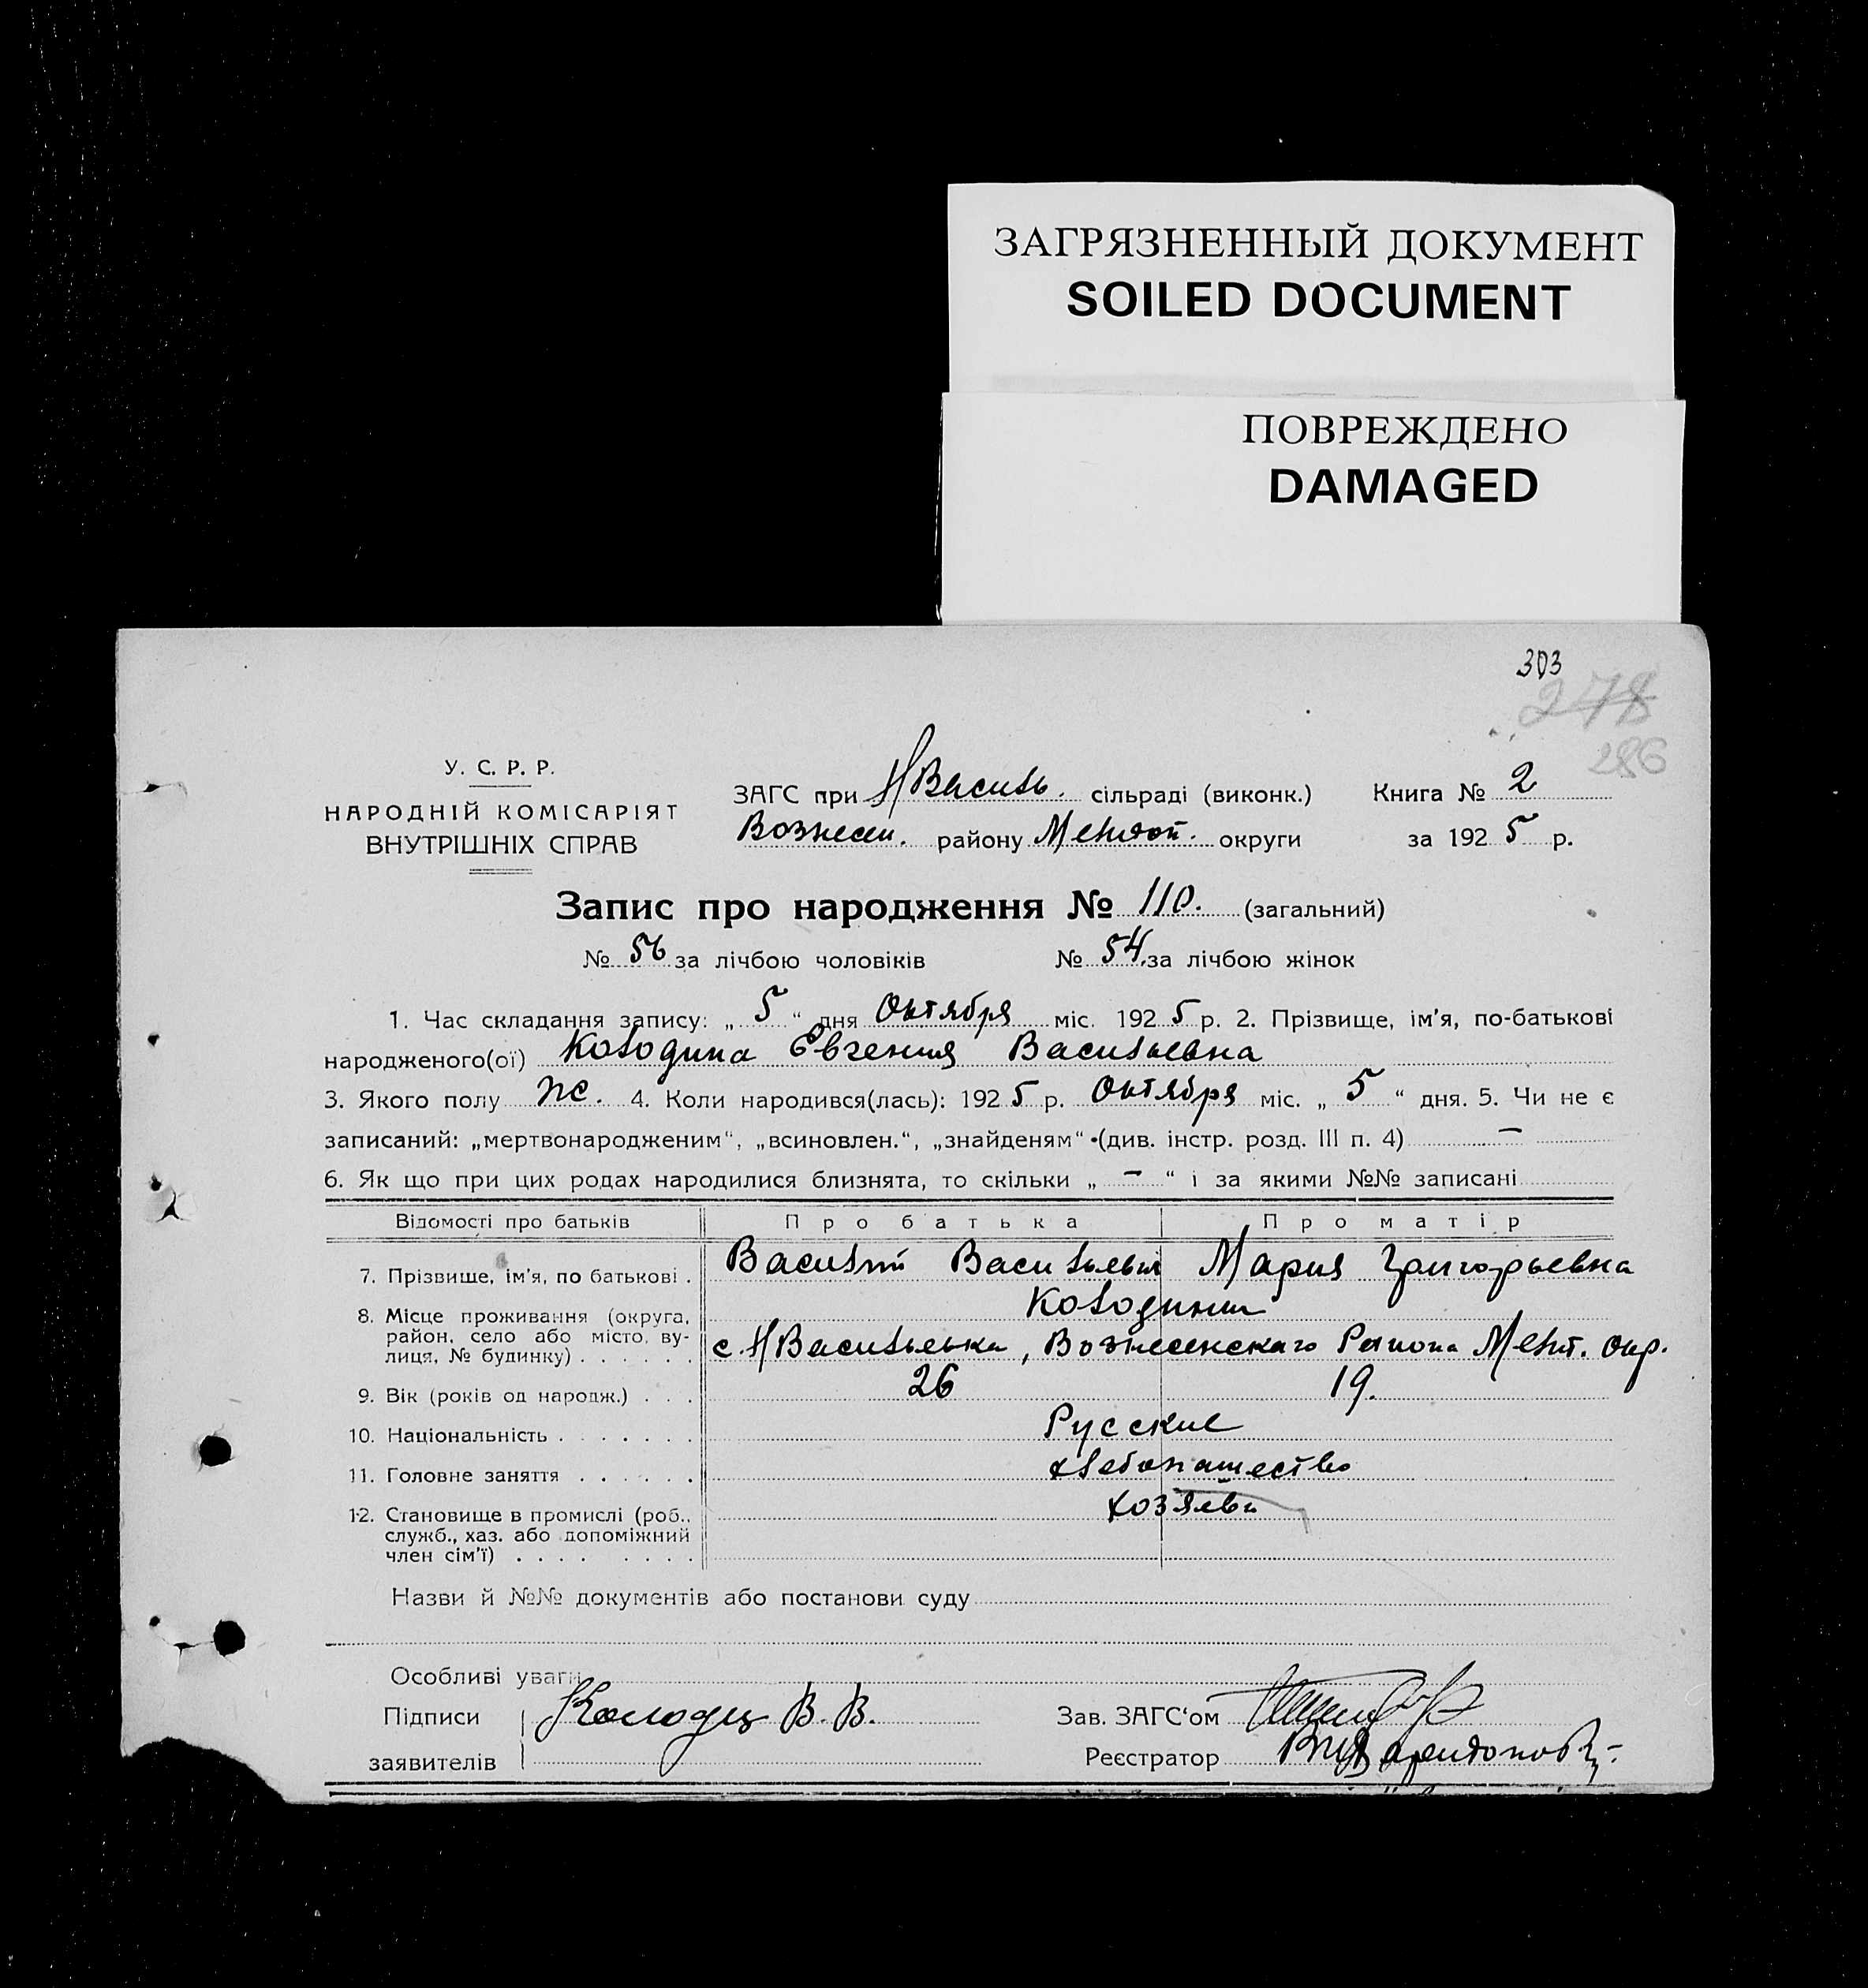 ЗАГРЯЗНЕННЫЙ ДОКУМЕНТ
SOILED DOCUMENT
ПОВРЕЖДЕНО
DAMAGED
303
278
286
У. С. Р. Р.
НАРОДНІЙ КОМІСАРІЯТ
ВНУТРІШНІХ СПРАВ
ЗАГС при НВасиль. сільраді (виконк.) Книга № 2
Вознесен. району Мелитоп. округи за 1925 р.
Запис про народження № 110. (загальний)
№ 56 за лічбою чоловіків № 54 за лічбою жінок
1. Час складання запису: „ 5 “ дня Октября міс. 1925 р. 2. Прізвище, ім'я, по-батькові
народженого(ої) Колодина Евгения Васильевна
3. Якого полу ж. 4. Коли народився(лась): 1925 р. Октября міс. „ 5 “ дня. 5. Чи не є
записаний: „мертвонародженим“, „всиновлен.“, „знайденям“ (див. інстр. розд. III п. 4) —
6. Як що при цих родах народилися близнята, то скільки „ — “ і за якими №№ записані
Відомості про батьків Про батька Про матір
7. Прізвище, ім'я, по батькові . Василий Васильевич Мария Григорьевна
Колодины
8. Місце проживання (округа,
район, село або місто, ву-
лиця, № будинку) . . . . . . с. НВасильевка, Вознесенскаго Района Мелит. окр.
9. Вік (років од народж.) . . . 26 19.
10. Національність . . . . . . . Русские
11. Головне заняття . . . . . . хлебопашество
12. Становище в промислі (роб.,
служб., хаз. або допоміжний
член сім'ї) . . . . . . . . хозяева
Назви й №№ документів або постанови суду
Особливі уваги
Підписи Колодин В. В. Зав. ЗАГС'ом
заявителів Реєстратор